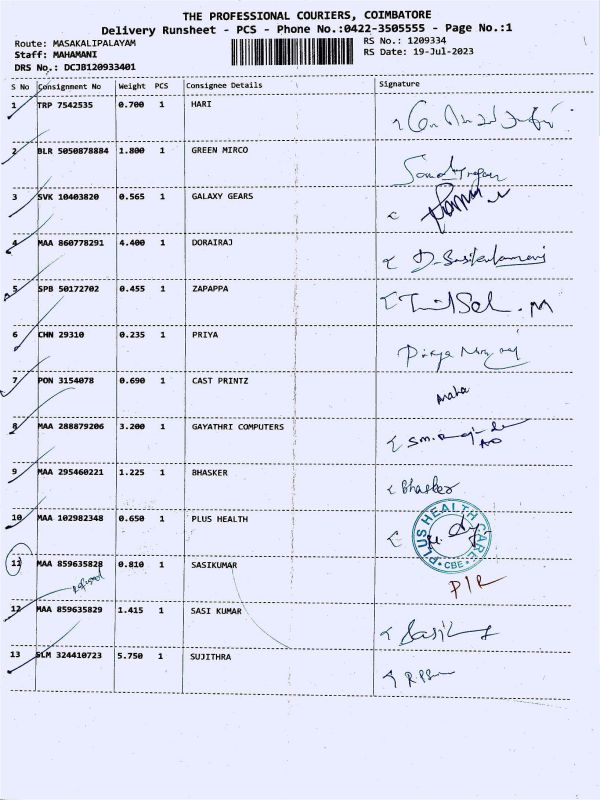 THE PROFESSIONAL COURIERS, COIMBATORE
Delivery Runsheet - PCS - Phone No.:0422-3505555 - Page No.:1
Route: MASAKALIPALAYAM
RS No.: 1209334
Staff: MAHAMANI
RS Date: 19-Jul-2023
DRS No.: DCJB120933401
S No Consignment No Weight PCS Consignee Details Signature
1 TRP 7542535 0.700 1 HARI
2 BLR 5050878884 1.800 1 GREEN MIRCO
3 SVK 10403820 0.565 1 GALAXY GEARS
4 MAA 860778291 4.400 1 DORAIRAJ
5 SPB 50172702 0.455 1 ZAPAPPA
6 CHN 29310 0.235 1 PRIYA
7 PON 3154078 0.690 1 CAST PRINTZ Maha
8 MAA 288879206 3.200 1 GAYATHRI COMPUTERS
9 MAA 295460221 1.225 1 BHASKER Bhasker
10 MAA 102982348 0.650 1 PLUS HEALTH PLUS HEALTH CARE CBE
11 MAA 859635828 0.810 1 SASIKUMAR P/R
Refused
12 MAA 859635829 1.415 1 SASI KUMAR
13 SLM 324410723 5.750 1 SUJITHRA